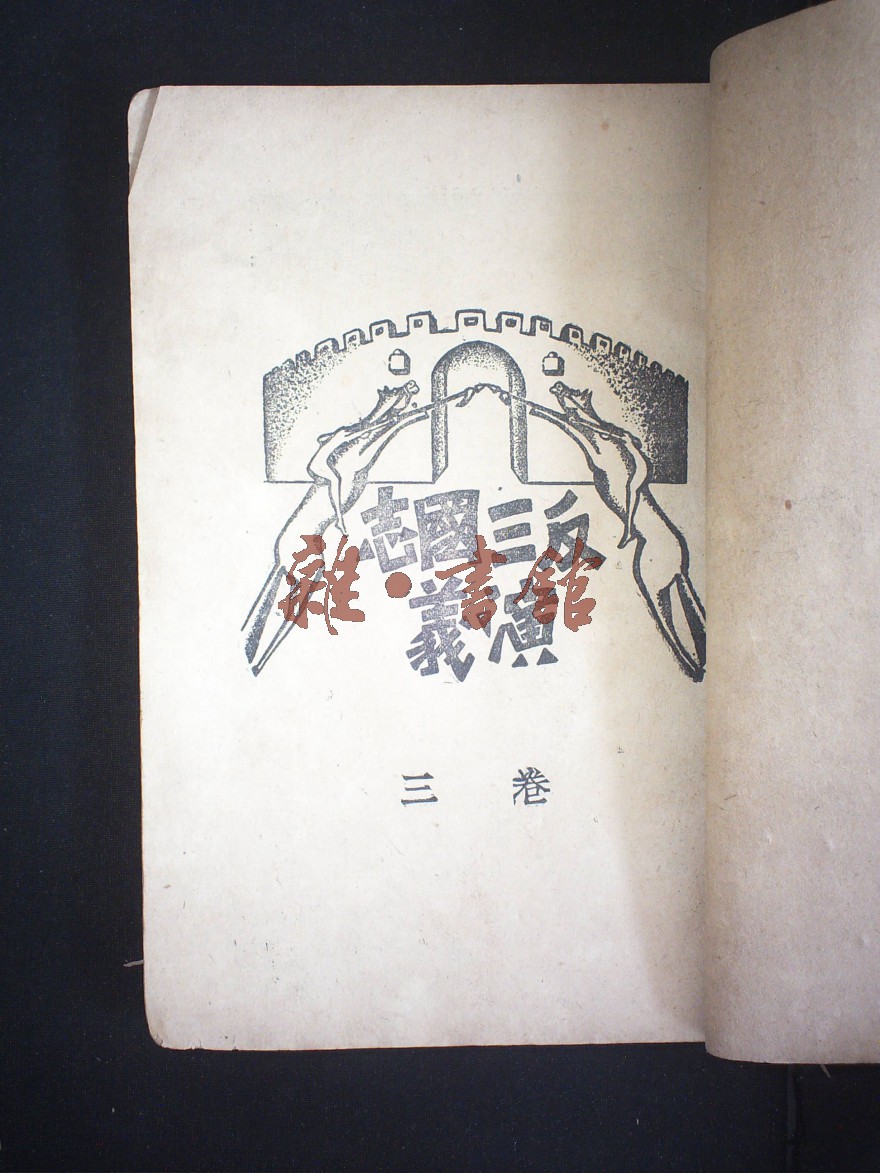 反三國志
演義
雜·書館
卷三